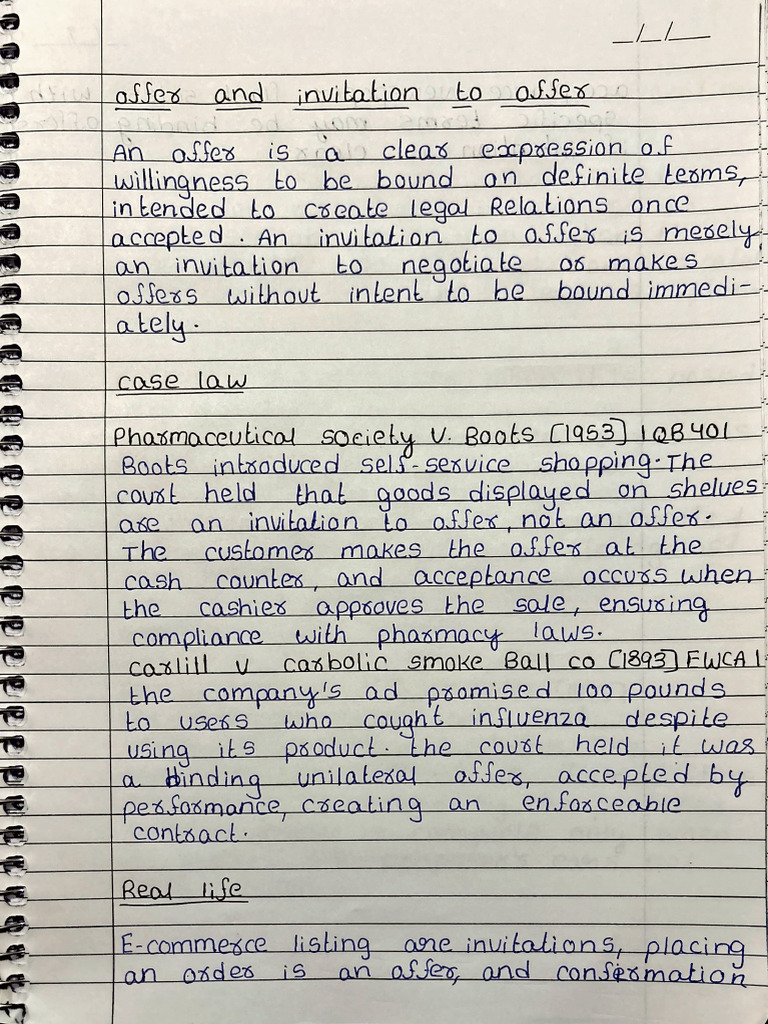 __/__/____
offer and invitation to offer
An offer is a clear expression of
willingness to be bound on definite terms,
intended to create legal Relations once
accepted. An invitation to offer is merely
an invitation to negotiate or makes
offers without intent to be bound immedi-
ately.
case law
Pharmaceutical society V. Boots [1953] 1QB 401
Boots introduced self-service shopping. The
court held that goods displayed on shelves
are an invitation to offer, not an offer.
The customer makes the offer at the
cash counter, and acceptance occurs when
the cashier approves the sale, ensuring
compliance with pharmacy laws.
carlill v carbolic smoke Ball co [1893] EWCA 1
the company's ad promised 100 pounds
to users who cought influenza despite
using its product. the court held it was
a binding unilateral offer, accepted by
performance, creating an enforceable
contract.
Real life
E-commerce listing are invitations, placing
an order is an offer, and confirmation